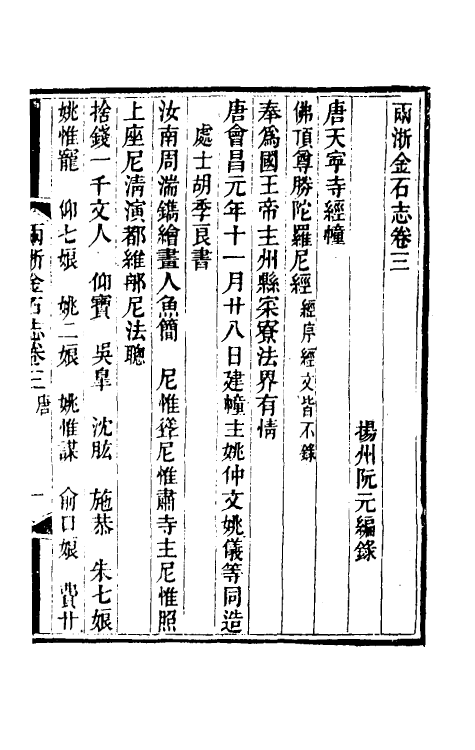 兩浙金石志卷三
揚州阮元編錄
唐天寧寺經幢
佛頂尊勝陀羅尼經 經序經文皆不錄
奉爲國王帝主州縣寀寮法界有情
唐會昌元年十一月廿八日建幢主姚仲文姚儀等同造
處士胡季良書
汝南周湍鐫繪畫人魚簡 尼惟 尼惟肅寺主尼惟照
上座尼淸演都維那尼法聰
捨錢一千文人 仰寶 吳皐 沈肱 施恭 朱七娘
姚惟寵 仰七娘 姚二娘 姚惟謀 俞口娘 費廿
兩浙金石志卷三 唐 一